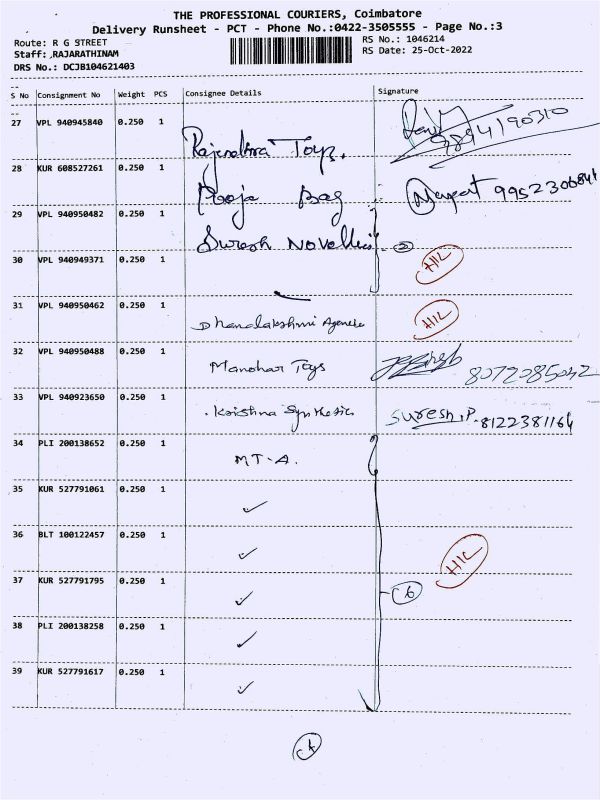 THE PROFESSIONAL COURIERS, Coimbatore
Delivery Runsheet - PCT - Phone No.:0422-3505555 - Page No.:3
Route: R G STREET RS No.: 1046214
Staff: RAJARATHINAM RS Date: 25-Oct-2022
DRS No.: DCJB104621403
S No Consignment No Weight PCS Consignee Details Signature
27 VPL 940945840 0.250 1 Rajendhra Toys. 9894190310
28 KUR 608527261 0.250 1 Pooja Bag 9952306841
29 VPL 940950482 0.250 1 Suresh Novelties 2
30 VPL 940949371 0.250 1 HIL
31 VPL 940950462 0.250 1 Dhanalakshmi Agencies HIL
32 VPL 940950488 0.250 1 Manohar Toys 8072085042
33 VPL 940923650 0.250 1 Krishna Synthetic Suresh.P. 8122381164
34 PLI 200138652 0.250 1 MT-A.
35 KUR 527791061 0.250 1 ✓
36 BLT 100122457 0.250 1 ✓ HIL
37 KUR 527791795 0.250 1 ✓ 6
38 PLI 200138258 0.250 1 ✓
39 KUR 527791617 0.250 1 ✓